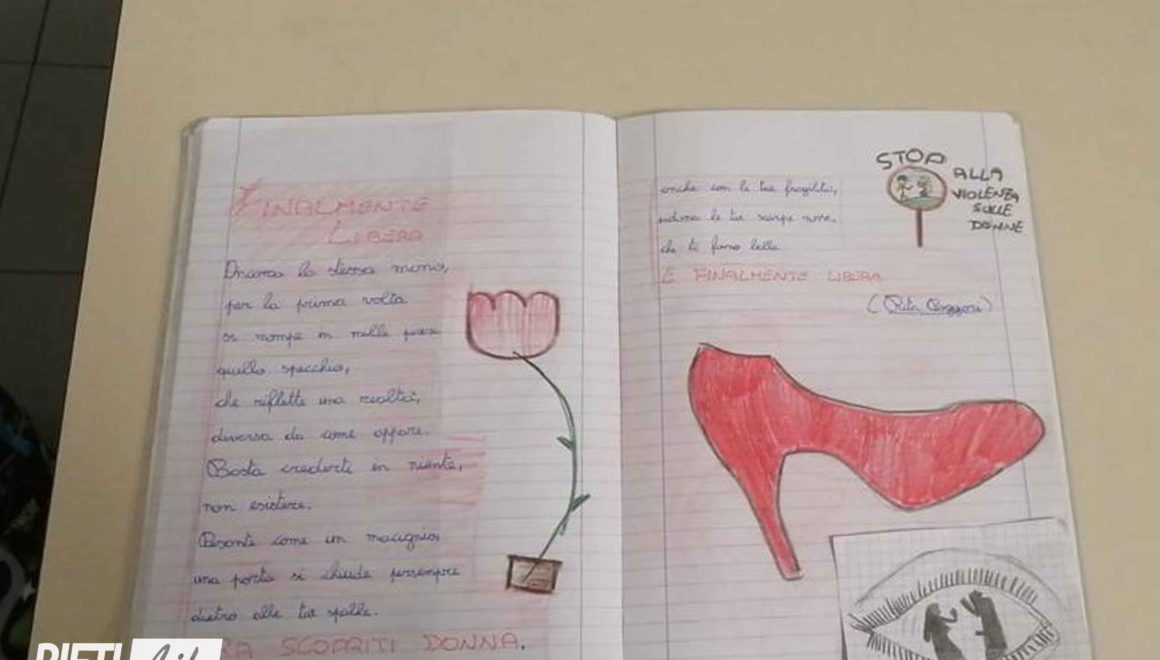 FINALMENTE
LIBERA
Ancora la stessa mano,
per la prima volta
si rompe in mille pezzi
quello specchio,
che riflette una realtà,
diversa da come appare.
Basta crederti in niente,
non esistere.
Pesante come un macigno,
una porta si chiude persempre
dietro alle tue spalle.
RA SCOPRITI DONNA.
anche con le tue fragilità,
indossa le tue scarpe rosse,
che ti fanno bella
E FINALMENTE LIBERA
(Rita
STOP
ALLA
VIOLENZA
SULLE
DONNE
RIETI